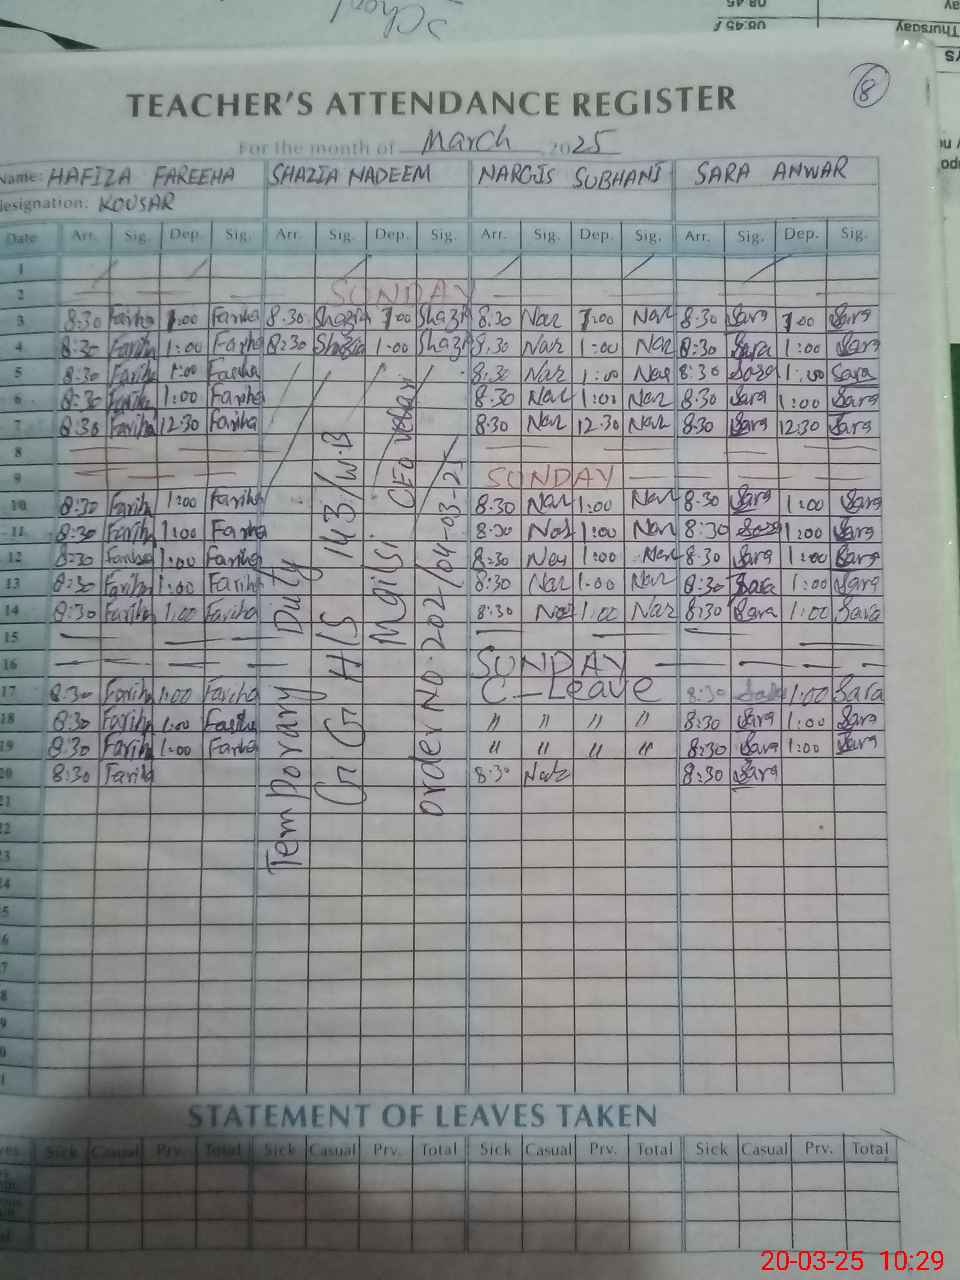 08.45
08:45
Thursday
8
TEACHER'S ATTENDANCE REGISTER
For the month of March 2025
Name: HAFIZA FAREEHA SHAZIA NADEEM NARGIS SUBHANI SARA ANWAR
Designation: KOUSAR
Date Arr. Sig. Dep. Sig. Arr. Sig. Dep. Sig. Arr. Sig. Dep. Sig. Arr. Sig. Dep. Sig.
1
2 SUNDAY
3 8:30 Fariha 1:00 Fariha 8:30 Shazia 1:00 Shazia 8:30 Nar 1:00 Nar 8:30 Sara 1:00 Sara
4 8:30 Fariha 1:00 Fariha 8:30 Shazia 1:00 Shazia 8:30 Nar 1:00 Nar 8:30 Sara 1:00 Sara
5 8:30 Fariha 1:00 Fariha 8:30 Nar 1:00 Nar 8:30 Sara 1:00 Sara
6 8:30 Fariha 1:00 Fariha 8:30 Nar 1:00 Nar 8:30 Sara 1:00 Sara
7 8:30 Fariha 12:30 Fariha 8:30 Nar 12:30 Nar 8:30 Sara 12:30 Sara
8
9 SUNDAY
10 8:30 Fariha 1:00 Fariha 8:30 Nar 1:00 Nar 8:30 Sara 1:00 Sara
11 8:30 Fariha 1:00 Fariha 8:30 Nar 1:00 Nar 8:30 Sara 1:00 Sara
12 8:30 Fariha 1:00 Fariha 8:30 Nar 1:00 Nar 8:30 Sara 1:00 Sara
13 8:30 Fariha 1:00 Fariha 8:30 Nar 1:00 Nar 8:30 Sara 1:00 Sara
14 8:30 Fariha 1:00 Fariha 8:30 Nar 1:00 Nar 8:30 Sara 1:00 Sara
15
16 SUNDAY
17 8:30 Fariha 1:00 Fariha C-Leave 8:30 Sara 1:00 Sara
18 8:30 Fariha 1:00 Fariha " " " " 8:30 Sara 1:00 Sara
19 8:30 Fariha 1:00 Fariha " " " " 8:30 Sara 1:00 Sara
20 8:30 Fariha 8:30 Nar 8:30 Sara
Temporary Duty
GGHS 143/W.B
Mailsi CEO vehari
order No. 202/04-03-25
21
22
23
24
5
6
7
8
9
0
1
STATEMENT OF LEAVES TAKEN
Sick Casual Prv. Total Sick Casual Prv. Total Sick Casual Prv. Total Sick Casual Prv. Total
20-03-25 10:29